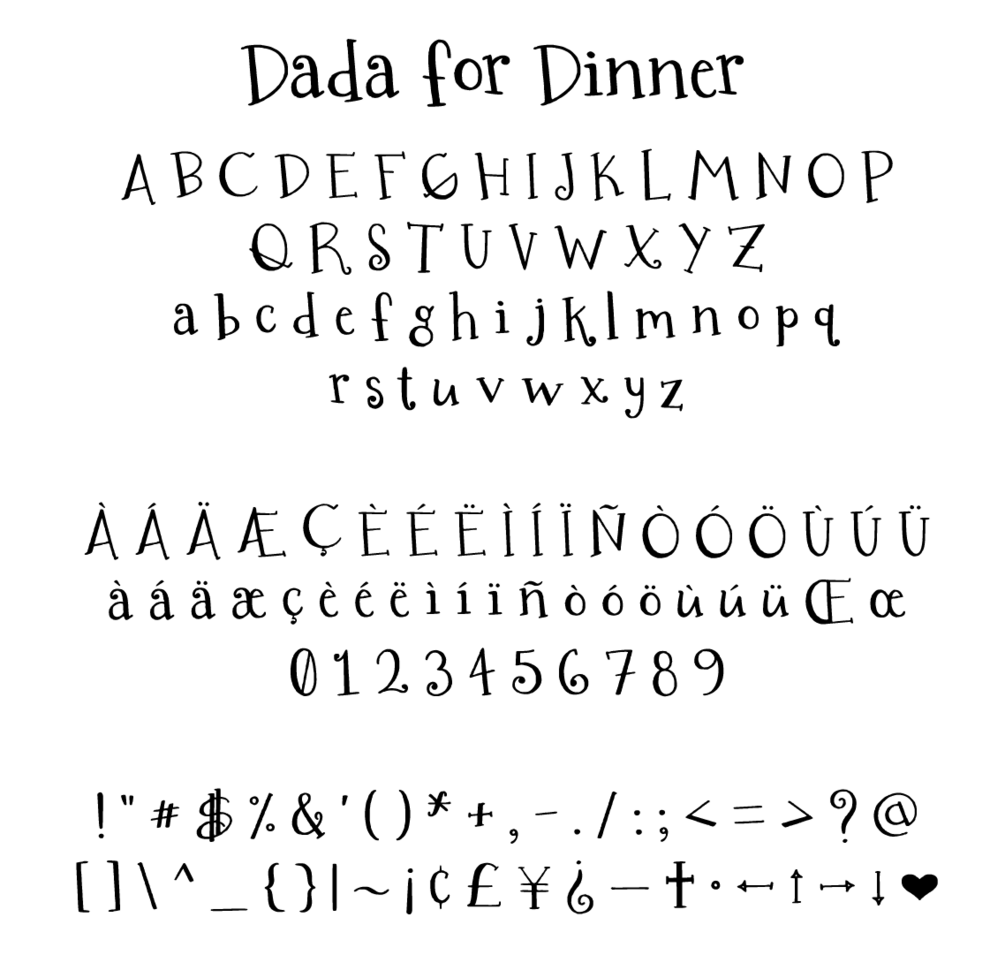 Dada for Dinner
A B C D E F G H I J K L M N O P
Q R S T U V W X Y Z
a b c d e f g h i j k l m n o p q
r s t u v w x y z
À Á Ä Æ Ç È É Ë Ì Í Ï Ñ Ò Ó Ö Ù Ú Ü
à á ä æ ç è é ë ì í ï ñ ò ó ö ù ú ü Œ œ
0 1 2 3 4 5 6 7 8 9
! " # $ % & ' ( ) * + , - . / : ; < = > ? @
[ ] \ ^ _ { } | ~ ¡ ¢ £ ¥ ¿ — † ° ← ↑ → ↓ ♥